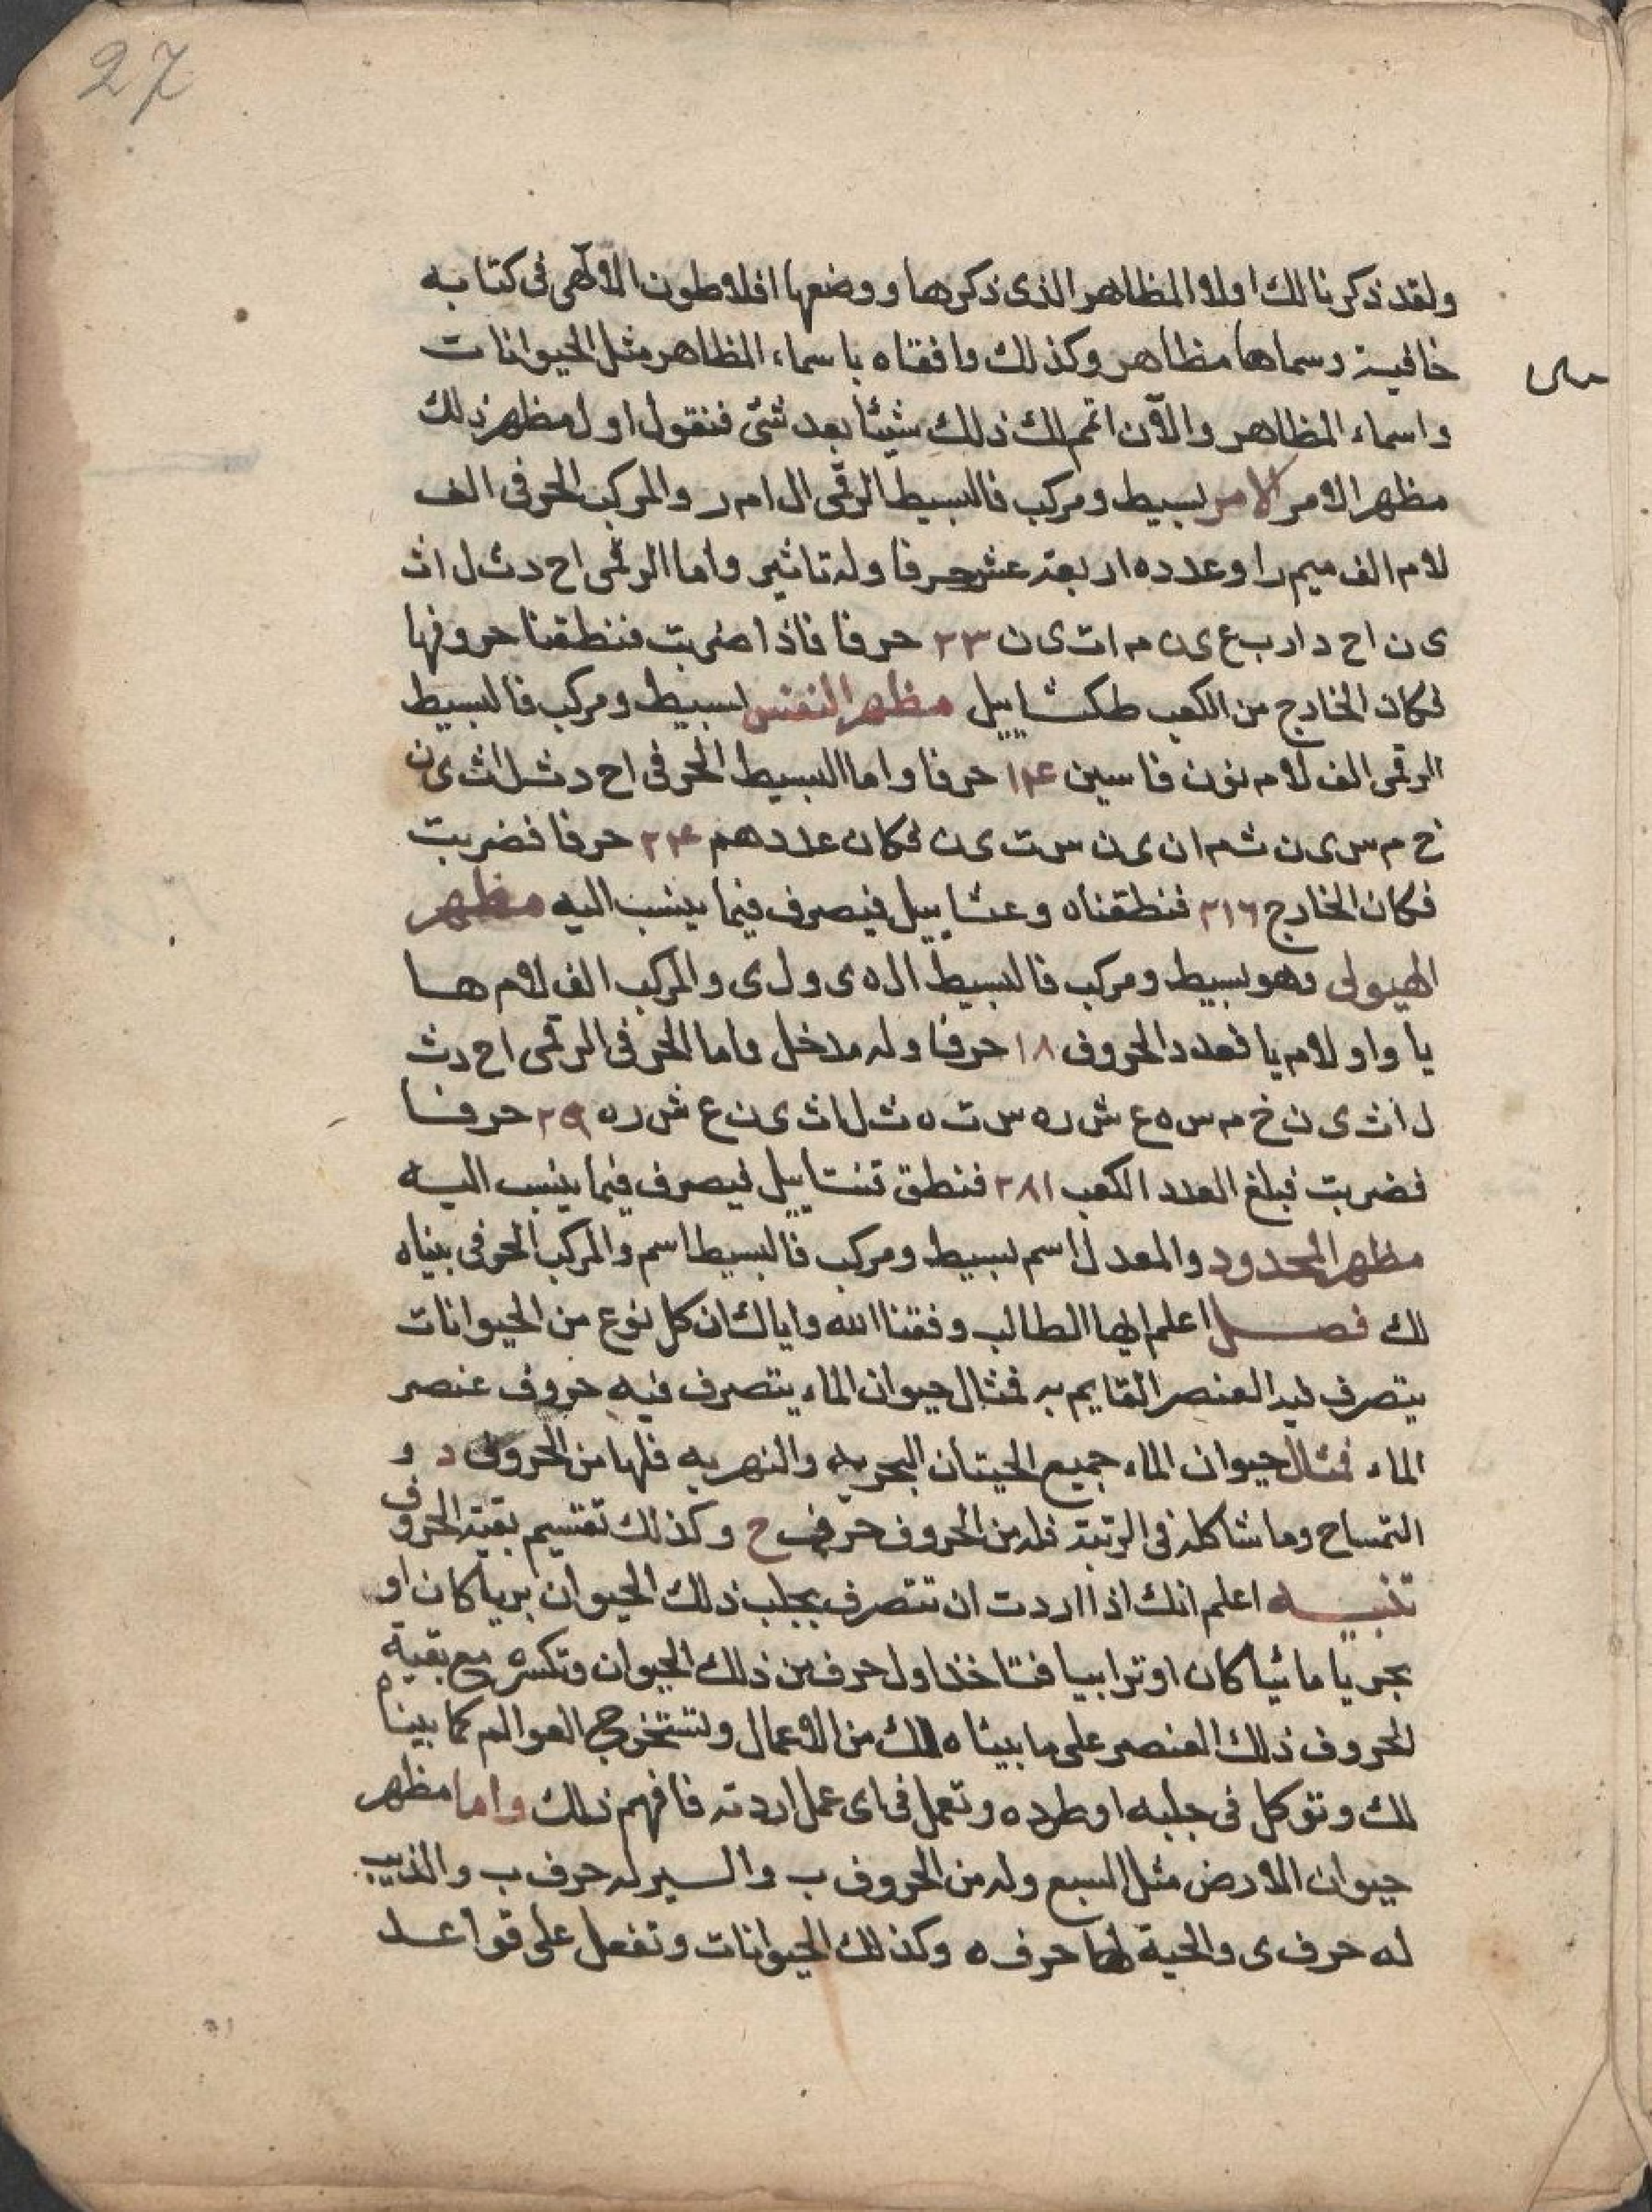 27
ولقد ذكرنا لك اولا المظاهر الذى ذكرها ووضعها افلاطون الالآهى فى كتابه
خافية وسماها مظاهر وكذلك وافقناه باسماء المظاهر مثل الحيوانات
واسماء المظاهر والآن اتمم لك ذلك شيئا بعد شئ فنقول اول مظهر ذلك
مظهر الامر الامر بسيط ومركب فالبسيط الرقمى ال ا م ر والمركب الحرفى الف
لام الف ميم را وعدده اربعة عشر حرفا وله تاثير واما الرقمى اح د ث ل اث
ى ن اح د ار ب ع ى ن م ات ى ن ٢٣ حرفا فاذا ضربت فنطقنا حروفها
فكان الخارج من الكعب طكثاييل مظهر النفس بسيط ومركب فالبسيط
الرقمى الف لام نون فا سين ١٤ حرفا واما البسيط الحرفى اح د ث ل اث ى ن
خ م س ى ن ث م ان ى ن س ت ى ن فكان عددهم ٢٤ حرفا فضربت
فكان الخارج ٢١٦ فنطقناه وعثاييل فيصرف فيما ينسب اليه مظهر
الهيولى وهو بسيط ومركب فالبسيط ال ه ى و ل ى والمركب الف لام هـا
يا واو لام يا فعدد الحروف ١٨ حرفا وله مدخل واما الحرفى الرقمى اح د ث
ل اث ى ن خ م س ه ع ش ر ه س ت ه ث ل اث ى ن ع ش ر ه ٢٩ حرفا
فضربت فبلغ العدد الكعب ٢٨١ فنطق تنتاييل فيصرف فيما ينسب اليه
مظهر المحدود والمعدل اسم بسيط ومركب فالبسيط اسم والمركب الحرفى بيناه
لك فصـــل اعلم ايها الطالب وفقنا الله واياك ان كل نوع من الحيوانات
يتصرف ليد العنصر القايم به فمثال حيوان الماء يتصرف فيه حروف عنصر
الماء فمثال حيوان الماء جميع الحيتان البحريه والنهريه فلها من الحروف د و
التمساح وما شاكله فى الرتبة فله من الحروف حرف ح وكذلك تقسيم بقية الحروف
تنبيـــه اعلم انك اذا اردت ان تتصرف بجلب ذلك الحيوان بريا كان او
بحريا مائيا كان او ترابيا فتاخذ اول حرف من ذلك الحيوان وتكسره مع بقية
الحروف ذلك العنصر على ما بيناه لك من الاعمال ولتستخرج العوالم كما بينا
لك وتوكل فى جلبه او طرده وتعمل فى اى عمل اردته فافهم ذلك واما مظهر
حيوان الارض مثل السبع وله من الحروف ب والسير له حرف ب والذيب
له حرف ى والحية لها حرف ه وكذلك الحيوانات وتفعل على قواعـد